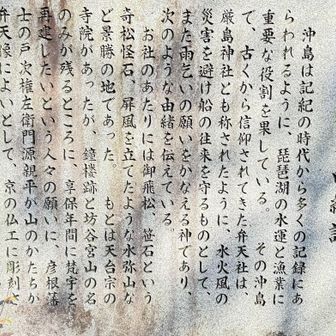 沖島は記紀の時代から多くの記録にあ
らわれるように、琵琶湖の水運と漁業に
重要な役割を果している。その沖島
て、古くから信仰されてきた弁天社は、
厳島神社とも称されたように、水火風の
災害を避け船の往来を守るものとして、
また雨乞いの願いをかなえる神であり、
次のような由緒を伝えている。
お社のあたりには御飛松、笹石という
奇松怪石、屏風を立てたような水弥山な
ど景勝の地であった。もとは天台宗の
寺院があったが、鐘楼跡と坊谷宮山の名
のみが残るところに、享保年間に梵宇を
再建したいという人々の願いに、彦根藩
士の戸次権左衛門源親平が山のかたちが
弁天像によいとして、京の仏工に彫刻さ